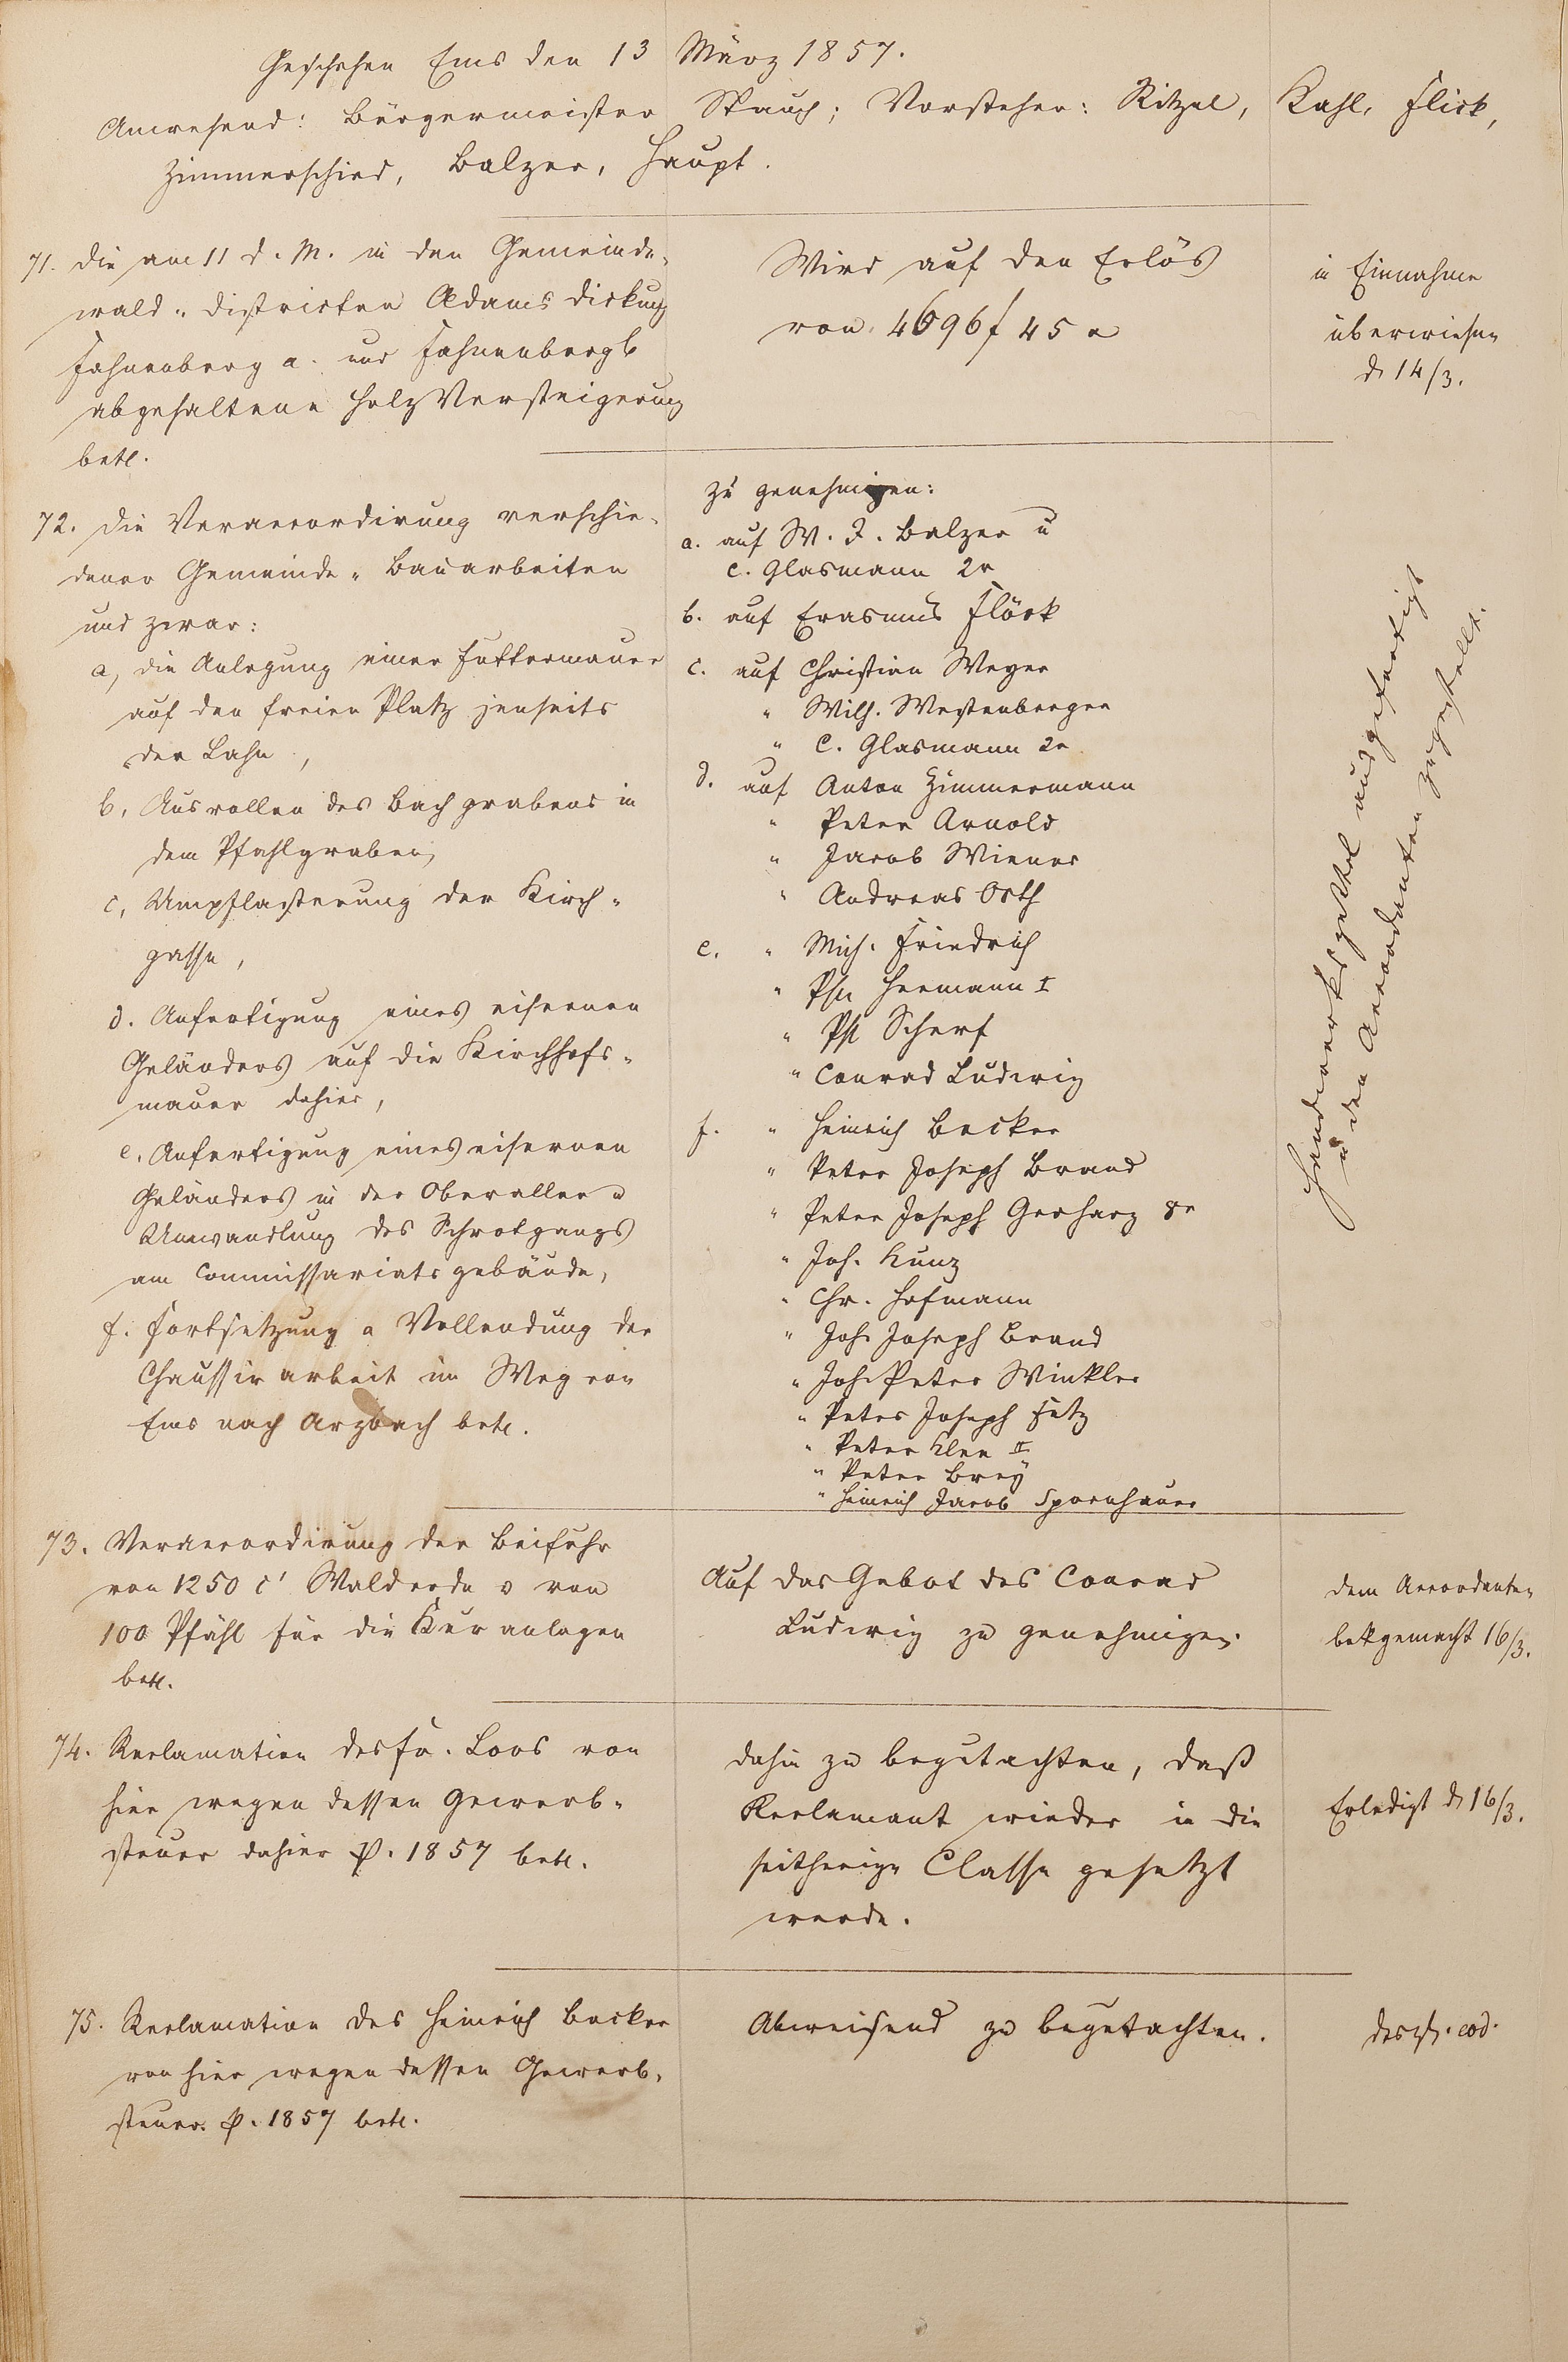 Geschehen Ems den 13 März 1857.
Anwesend: Bürgermeister Spauch; Vorsteher: Ritzel, Kahl, Flick,
Zimmerschied, Balzer, Haupt.
71. Die am 11 d. M. in den Gemeinde-
wald-Districten Adams
Fahnenberg a. und Fahnenberg b
abgehaltene Holzversteigerung
betr.
Wird auf den Erlös
von 4696 f 45 x
in Einnahme
überwiesen
d 14/3.
72. Die Veraccordirung verschie-
dener Gemeinde-Bauarbeiten
und zwar:
a, die Anlegung einer Futtermauer
auf den freien Platz jenseits
der Lahn,
b, Ausrollen des Bachgrabens in
dem Pfahlgraben,
c, Umpflasterung der Kirch-
gasse,
d. Anfertigung eines eisernen
Geländers auf die Kirchhofs-
mauer dahier,
e. Anfertigung eines eisernen
Geländers in der Oberallee u
Umwandlung des Schrotgangs
am Commissariatsgebäude,
f. Fortsetzung u Vollendung der
Chaussirarbeit im Weg von
Ems nach Arzbach betr.
zu genehmigen:
a. auf W. J. Balzer u
C. Glasmann 2r
b. auf Erasmus Flöck
c. auf Christian Weyer
" Wilh. Westenberger
" C. Glasmann 2r
d. auf Anton Zimmermann
" Peter Arnold
" Jacob Wiener
" Andreas Orth
e. " Mich. Friedrich
" Phil Hermann I
" Phil Scherf
" Conrad Ludwig
f. " Heinrich Becker
" Peter Joseph Brand
" Peter Joseph Gerharz 8r
" Joh. Kunz
" Chr. Hofmann
" Joh. Joseph Brand
" Joh. Peter Winkler
" Peter Joseph Fetz
" Peter Klee II
" Peter Brey
" Heinrich Jacob Spornhauer
Handwerkszettel ausgefertigt
u den Accordanten zugestellt.
73. Veraccordirung der Beifuhr
von 1250 c' Walderde u von
100 Pfähl für die Kuranlagen
betr.
Auf das Gebot des Conrad
Ludwig zu genehmigen.
dem Accordanten
bekgemacht 16/3.
74. Reclamation des Fr. Loos von
hier wegen dessen Gewerb-
steuer dahier p. 1857 betr.
dahin zu begutachten, daß
Reclamant wieder in die
seitherige Classe gesetzt
werde.
Erledigt d 16/3.
75. Reclamation des Heinrich Becker
von hier wegen dessen Gewerb-
steuer p. 1857 betr.
Abweisend zu begutachten.
desgl. eod.